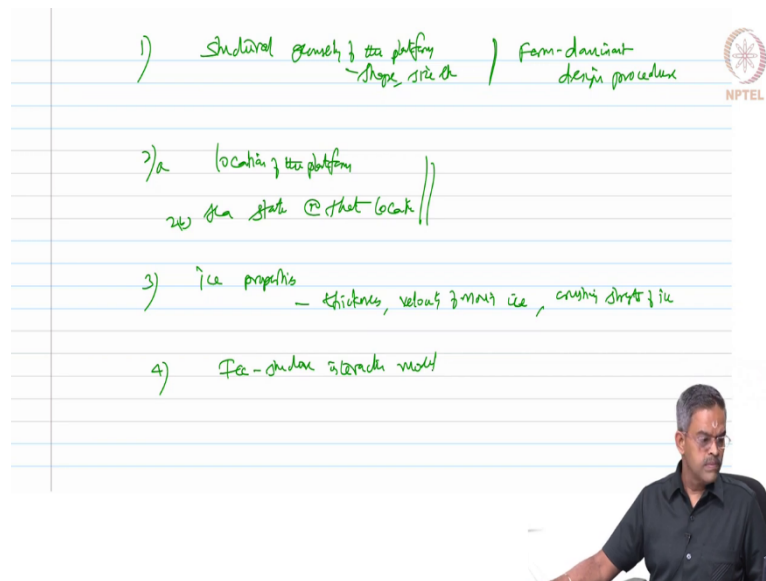 1) Structural geometry of the platform
- shape, size etc
Form-dominant
design procedure
NPTEL
2)a location of the platform
2b) sea state @ that locate
3) ice properties
- thickness, velocity of moving ice, crushing strength of ice
4) Ice-structure interaction model